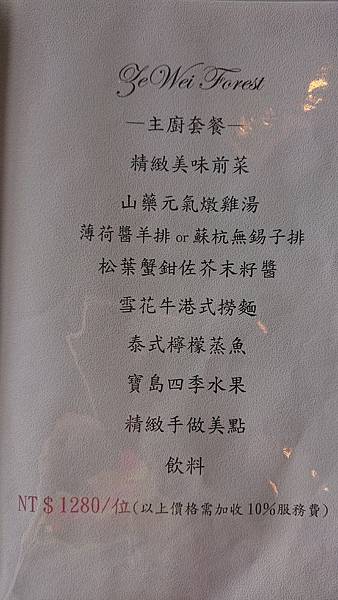 ZeWei Forest
—主廚套餐—
精緻美味前菜
山藥元氣燉雞湯
薄荷醬羊排 or 蘇杭無錫子排
松葉蟹鉗佐芥末籽醬
雪花牛港式撈麵
泰式檸檬蒸魚
寶島四季水果
精緻手做美點
飲料
NT＄1280/位(以上價格需加收10%服務費)